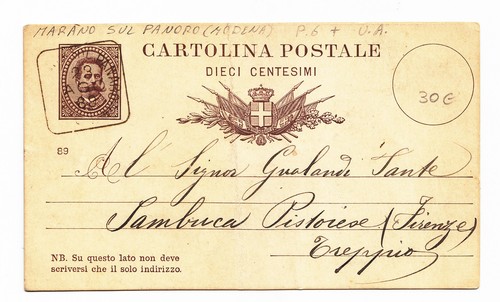 MARANO SUL PANORO (MODENA) P.6 + U.A.
CARTOLINA POSTALE
DIECI CENTESIMI
30€
89
Al Signor Gualandi Sante
Sambuca Pistoiese (Firenze)
Treppio
NB. Su questo lato non deve
scriversi che il solo indirizzo.